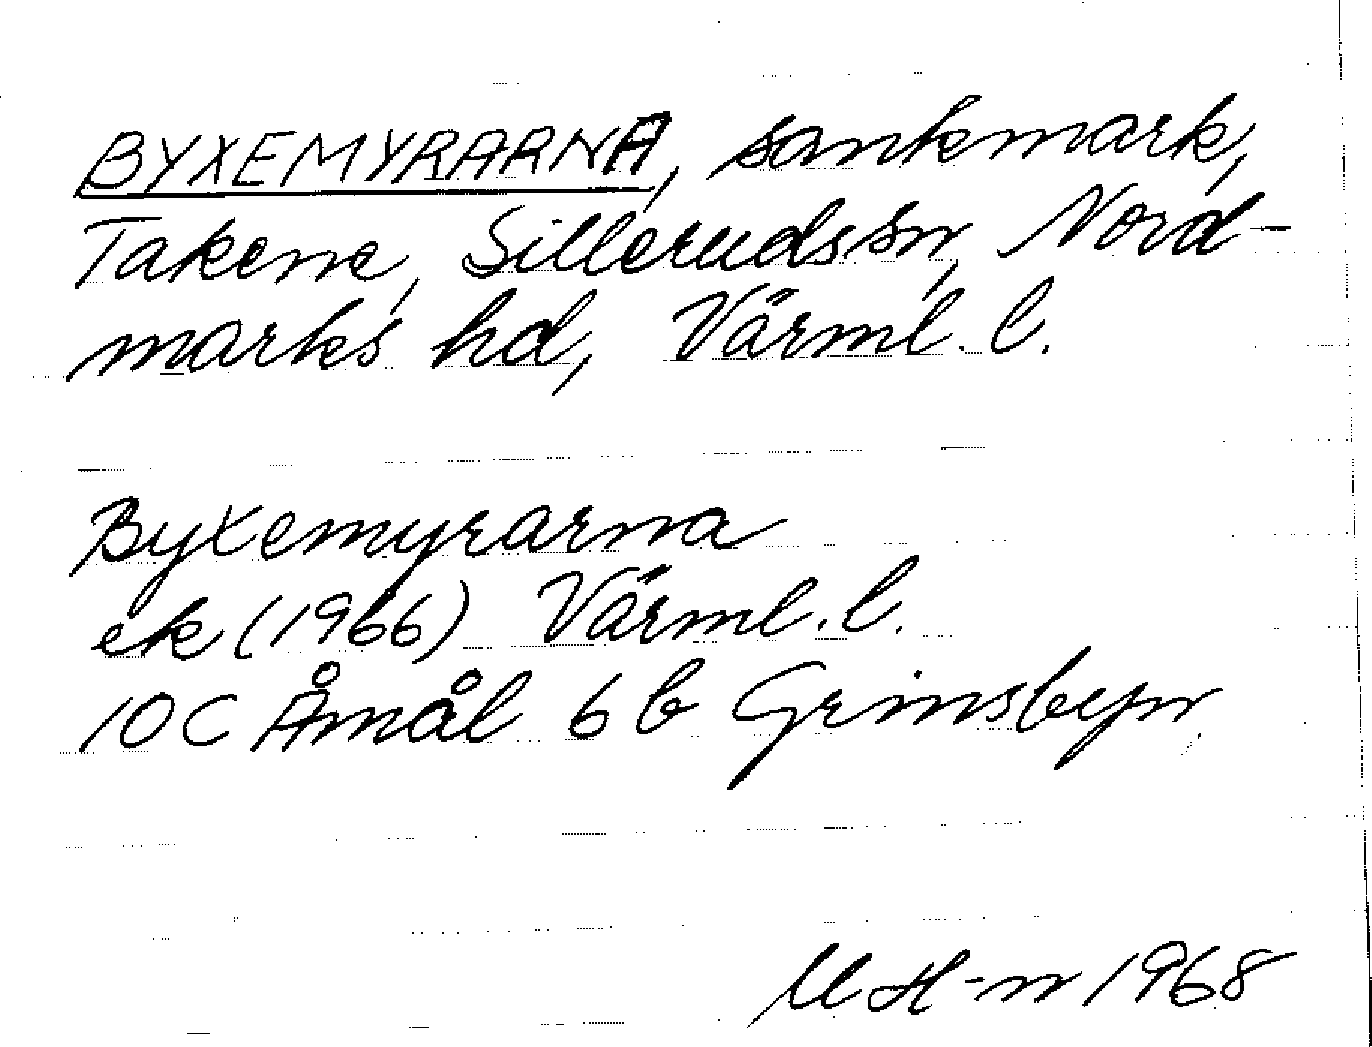 BYXEMYRARNA, sankmark,
Takene, Sillerudssn, Nord-
marks hd, Värml. l.
Byxemyrarna
ek (1966) Värml. l.
10C Åmål 6b Grinsbyn
M H-n 1968